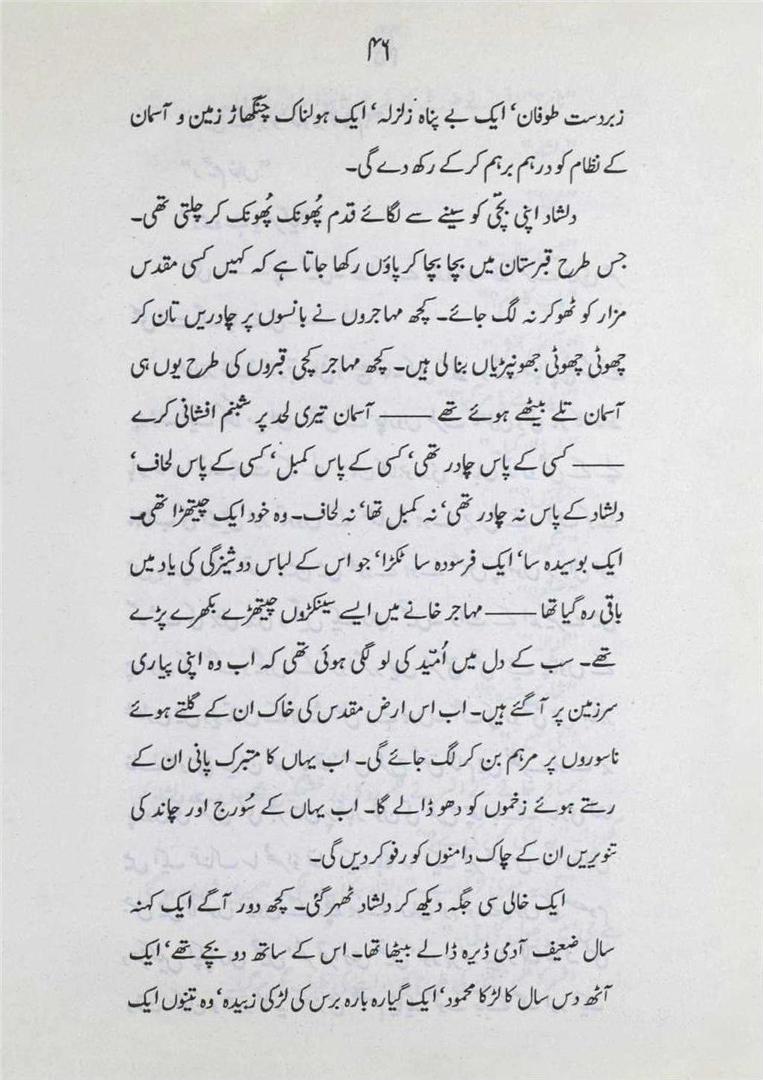 ۴۶
زبردست طوفان‘ ایک بے پناہ زلزلہ‘ ایک ہولناک چنگھاڑ زمین و آسمان
کے نظام کو درہم برہم کرکے رکھ دے گی۔
دلشاد اپنی بچّی کو سینے سے لگائے قدم پُھونک پُھونک کر چلتی تھی۔
جس طرح قبرستان میں بچا بچا کر پاؤں رکھا جاتا ہے کہ کہیں کسی مقدس
مزار کو ٹھوکر نہ لگ جائے۔ کچھ مہاجروں نے بانسوں پر چادریں تان کر
چھوٹی چھوٹی جھونپڑیاں بنالی ہیں۔ کچھ مہاجر کچی قبروں کی طرح یوں ہی
آسمان تلے بیٹھے ہوئے تھے —— آسمان تیری لحد پر شبنم افشانی کرے
—— کسی کے پاس چادر تھی‘ کسی کے پاس کمبل‘ کسی کے پاس لحاف‘
دلشاد کے پاس نہ چادر تھی‘ نہ کمبل تھا‘ نہ لحاف۔ وہ خود ایک چیتھڑا تھی۔
ایک بوسیدہ سا‘ ایک فرسودہ سا ٹکڑا‘ جو اس کے لباس دوشیزگی کی یاد میں
باقی رہ گیا تھا —— مہاجر خانے میں ایسے سینکڑوں چیتھڑے بکھرے پڑے
تھے۔ سب کے دل میں اُمّید کی لو لگی ہوئی تھی کہ اب وہ اپنی پیاری
سرزمین پر آگئے ہیں۔ اب اس ارض مقدس کی خاک ان کے گلتے ہوئے
ناسوروں پر مرہم بن کر لگ جائے گی۔ اب یہاں کا متبرک پانی ان کے
رستے ہوئے زخموں کو دھو ڈالے گا۔ اب یہاں کے سُورج اور چاند کی
تنویریں ان کے چاک دامنوں کو رفو کردیں گی۔
ایک خالی سی جگہ دیکھ کر دلشاد ٹھہر گئی۔ کچھ دور آگے ایک کہنہ
سال ضعیف آدمی ڈیرہ ڈالے بیٹھا تھا۔ اس کے ساتھ دو بچے تھے‘ ایک
آٹھ دس سال کا لڑکا محمود‘ ایک گیارہ بارہ برس کی لڑکی زبیدہ‘ وہ تینوں ایک